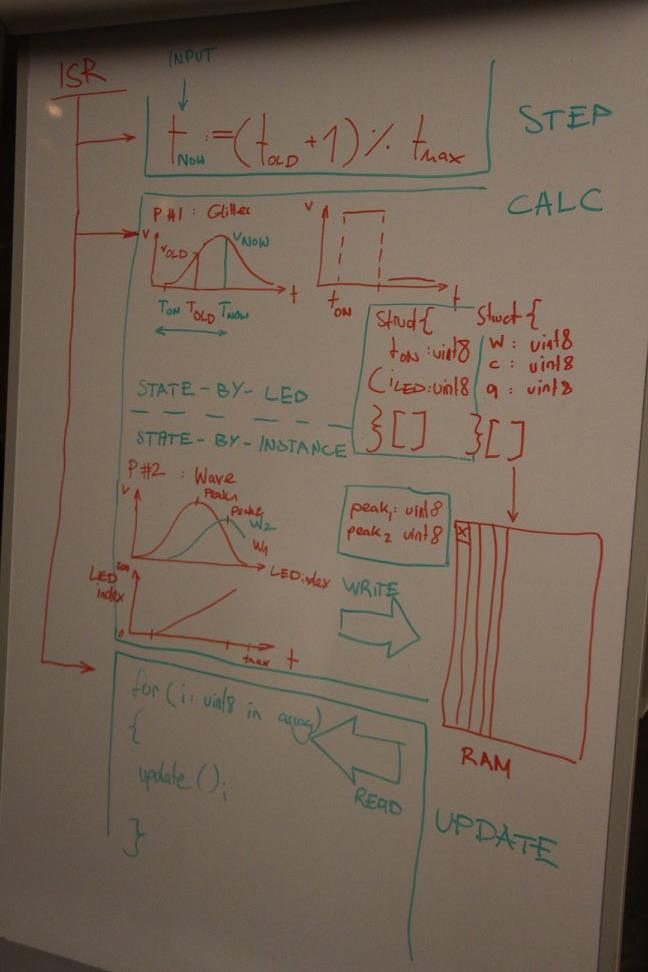 ISR
INPUT
tNOW := (tOLD + 1) % tmax
STEP
CALC
P#1 : Glitter
V
VOLD
VNOW
TON TOLD TNOW
t
V
tON
t
Struct {
tON : uint8
CiLED : uint8
} []
Struct {
w : uint8
c : uint8
a : uint8
} []
STATE-BY-LED
STATE-BY-INSTANCE
P#2 : Wave
V
Peak1
Peak2
W2
W1
LED index
peak1 : uint8
peak2 uint8
LED
index
200
0
tmax
t
WRITE
X
RAM
for (i : uint8 in array)
{
update ();
}
READ
UPDATE